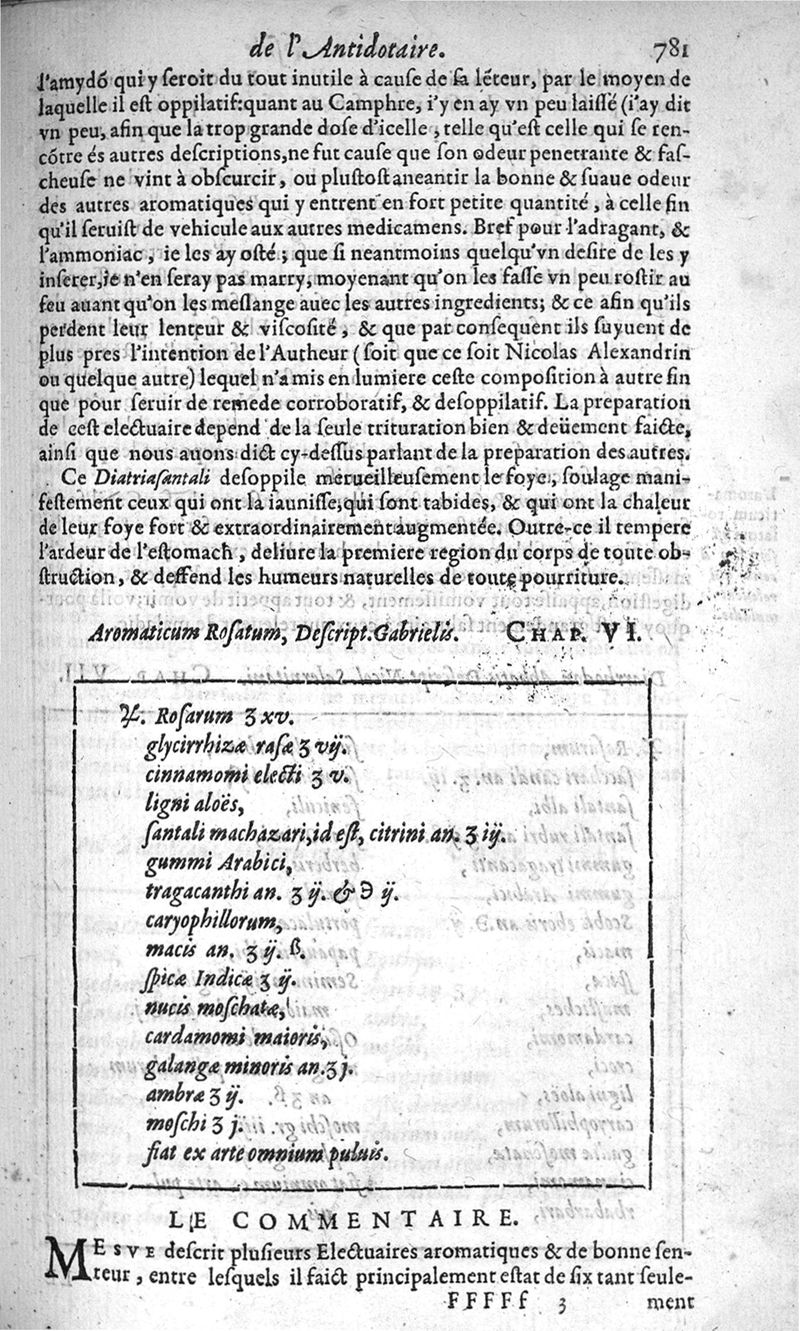 de l'Antidotaire. 781
l'amydõ qui y ſeroit du tout inutile à cauſe de ſa lẽteur, par le moyen de
laquelle il eſt oppilatif:quant au Camphre, i'y en ay vn peu laiſſé (i'ay dit
vn peu, afin que la trop grande doſe d'icelle, telle qu'eſt celle qui ſe ren-
cõtre és autres deſcriptions,ne fut cauſe que ſon odeur penetrante & faſ-
cheuſe ne vint à obſcurcir, ou pluſtoſt aneantir la bonne & ſuaue odeur
des autres aromatiques qui y entrent en fort petite quantité, à celle fin
qu'il ſeruiſt de vehicule aux autres medicamens. Bref pour l'adragant, &
l'ammoniac, ie les ay oſté; que ſi neantmoins quelqu'vn deſire de les y
inſerer,ie n'en ſeray pas marry, moyenant qu'on les faſſe vn peu roſtir au
feu auant qu'on les meſlange auec les autres ingredients; & ce afin qu'ils
perdent leur lenteur & viſcoſité, & que par conſequent ils ſuyuent de
plus pres l'intention de l'Autheur (ſoit que ce ſoit Nicolas Alexandrin
ou quelque autre) lequel n'a mis en lumiere ceſte compoſition à autre fin
que pour ſeruir de remede corroboratif, & deſoppilatif. La preparation
de ceſt electuaire depend de la ſeule trituration bien & deüement faicte,
ainſi que nous auons dict cy-deſſus parlant de la preparation des autres.
Ce Diatriaſantali deſoppile merueilleuſement le foye, ſoulage mani-
feſtement ceux qui ont la iauniſſe,qui ſont tabides, & qui ont la chaleur
de leur foye fort & extraordinairement augmentée. Outre-ce il tempere
l'ardeur de l'eſtomach, deliure la premiere region du corps de toute ob-
ſtruction, & deffend les humeurs naturelles de toute pourriture.
Aromaticum Roſatum, Deſcript. Gabrielis. CHAP. VI.
℞. Roſarum ʒ xv.
glycirrhizæ raſæ ʒ vij.
cinnamomi electi ʒ v.
ligni aloës,
ſantali machazari,id eſt, citrini an. ʒ iij.
gummi Arabici,
tragacanthi an. ʒ ij. & ℈ ij.
caryophillorum,
macis an. ʒ ij. ß.
ſpicæ Indicæ ʒ ij.
nucis moſchatæ,
cardamomi maioris,
galangæ minoris an.ʒ j.
ambræ ʒ ij.
moſchi ʒ j.
fiat ex arte omnium puluis.
LE COMMENTAIRE.
MESVE deſcrit pluſieurs Electuaires aromatiques & de bonne ſen-
teur, entre leſquels il faict principalement eſtat de ſix tant ſeule-
FFFFf 3 ment